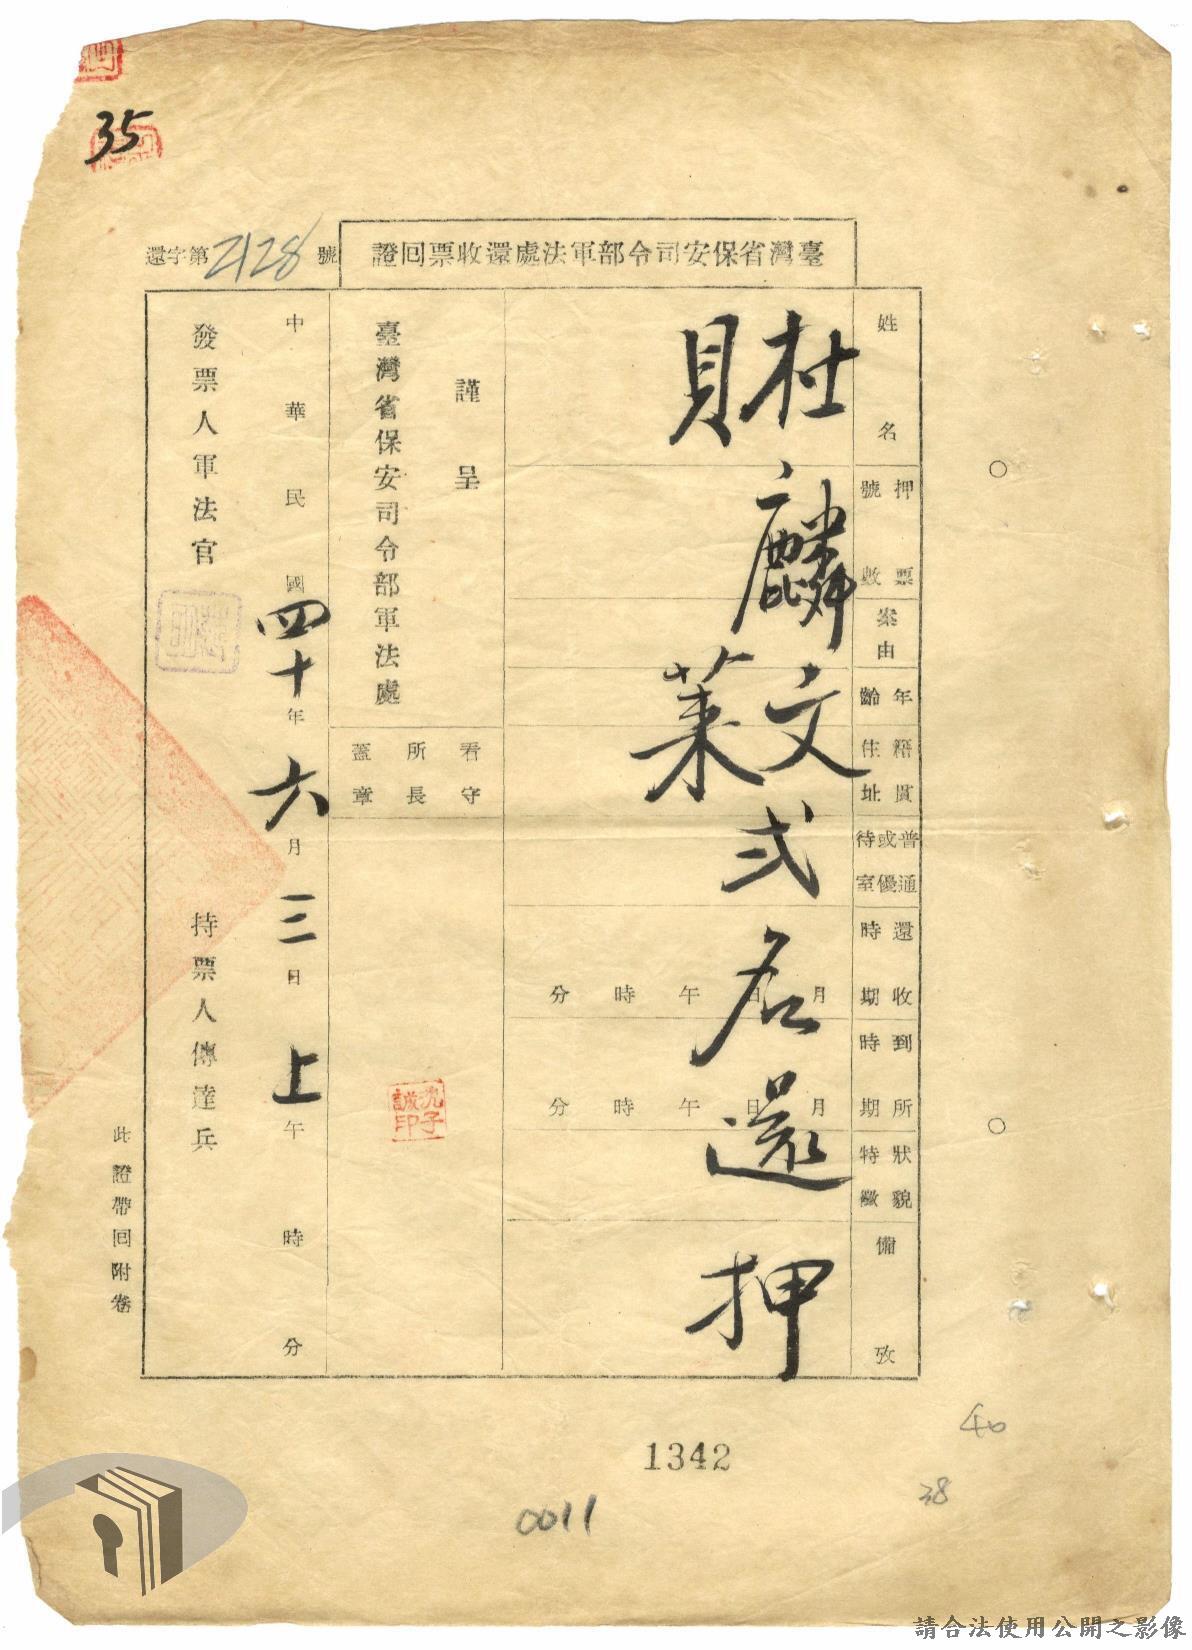 35
臺灣省保安司令部軍法處還收票回證
還字第2128號
姓名
押票號數
案由
年齡
籍貫住址
普通或優待室
還收時期
到所時期
狀貌特徵
備攷
杜麟文
貝萊
弍名還押
月日午時分
月日午時分
謹呈
臺灣省保安司令部軍法處
看守所長蓋章
沈子誠印
中華民國四十年六月三日上午時分
發票人軍法官
持票人傳達兵
此證帶回附卷
1342
0011
40
38
請合法使用公開之影像